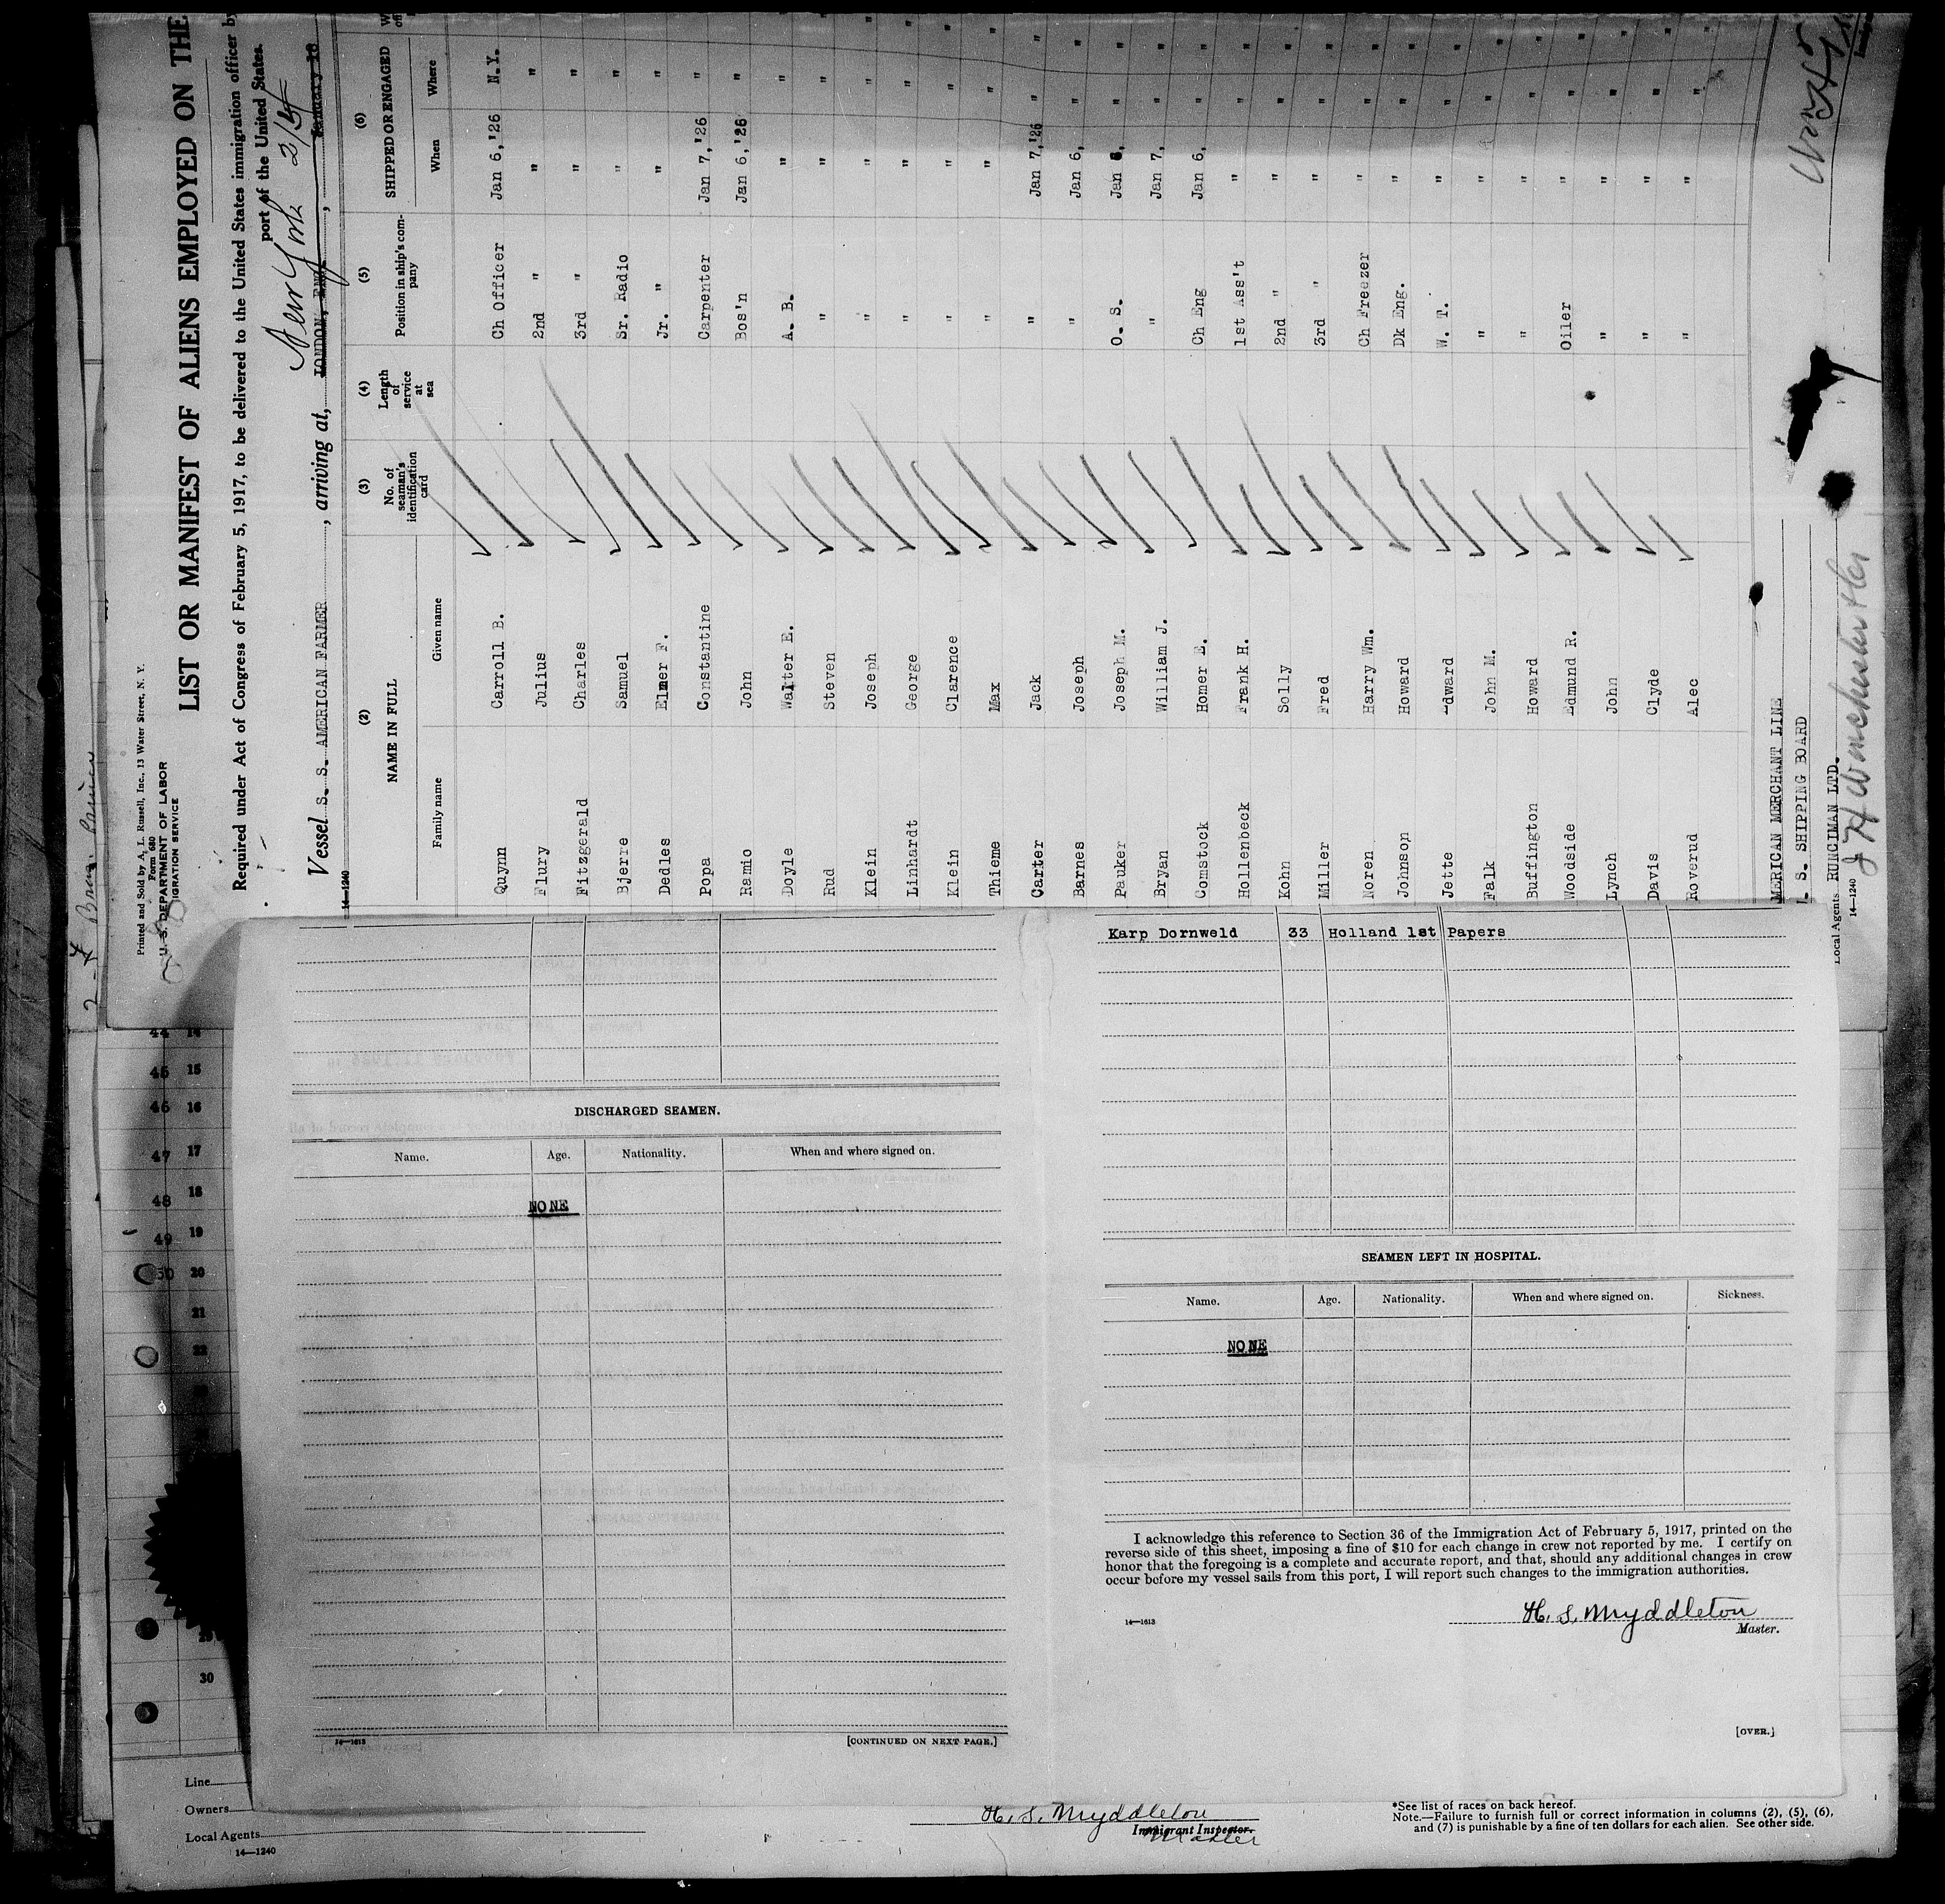 Printed and Sold by A. L. Russell, Inc., 13 Water Street, N. Y.
Form 680
U. S. DEPARTMENT OF LABOR
IGRATION SERVICE
LIST OR MANIFEST OF ALIENS EMPLOYED ON THE
Required under Act of Congress of February 5, 1917, to be delivered to the United States immigration officer by
port of the United States.
New York 2/5
Vessel S. S. AMERICAN FARMER, arriving at, LONDON, ENG, January 18
14—1240
(2) (3) (4) (5) (6)
NAME IN FULL No. of seaman's identification card Length of service at sea Position in ship's company SHIPPED OR ENGAGED
Family name Given name When Where
Quynn Carroll B. Ch Officer Jan 6,'26 N.Y.
Flury Julius 2nd " " "
Fitzgerald Charles 3rd " " "
Bjerre Samuel Sr. Radio " "
Dedles Elmer F. Jr. " " "
Popa Constantine Carpenter Jan 7,'26 "
Ramio John Bos'n Jan 6,'26 "
Doyle Walter E. A. B. " "
Rud Steven " " "
Klein Joseph " " "
Linhardt George " " "
Klein Clarence " " "
Thieme Max " " "
Carter Jack " Jan 7,'26 "
Barnes Joseph " Jan 6, "
Pauker Joseph M. O. S. Jan 6, "
Bryan William J. " Jan 7, "
Comstock Homer E. Ch Eng Jan 6, "
Hollenbeck Frank H. 1st Ass't " "
Kohn Solly 2nd " " "
Miller Fred 3rd " " "
Noren Harry Wm. Ch Freezer " "
Johnson Howard Dk Eng. " "
Jette Edward W. T. " "
Falk John M. " " "
Buffington Howard " " "
Woodside Edmund R. Oiler " "
Lynch John " " "
Davis Clyde " " "
Roverud Alec " " "
MERICAN MERCHANT LINE
. S. SHIPPING BOARD
Local Agents RUNCIMAN LTD.
14—1240
Karp Dornweld 33 Holland 1st Papers
DISCHARGED SEAMEN.
Name. Age. Nationality. When and where signed on.
NONE
14—1613
[CONTINUED ON NEXT PAGE.]
SEAMEN LEFT IN HOSPITAL.
Name. Age. Nationality. When and where signed on. Sickness.
NONE
I acknowledge this reference to Section 36 of the Immigration Act of February 5, 1917, printed on the
reverse side of this sheet, imposing a fine of $10 for each change in crew not reported by me. I certify on
honor that the foregoing is a complete and accurate report, and that, should any additional changes in crew
occur before my vessel sails from this port, I will report such changes to the immigration authorities.
14—1613
H. S. Myddleton
Master.
[OVER.]
44 14
45 15
46 16
47 17
48 18
49 19
50 20
21
22
30
Line
Owners
Local Agents
14—1240
H. S. Myddleton
Immigrant Inspector.
Master
*See list of races on back hereof.
Note.—Failure to furnish full or correct information in columns (2), (5), (6),
and (7) is punishable by a fine of ten dollars for each alien. See other side.